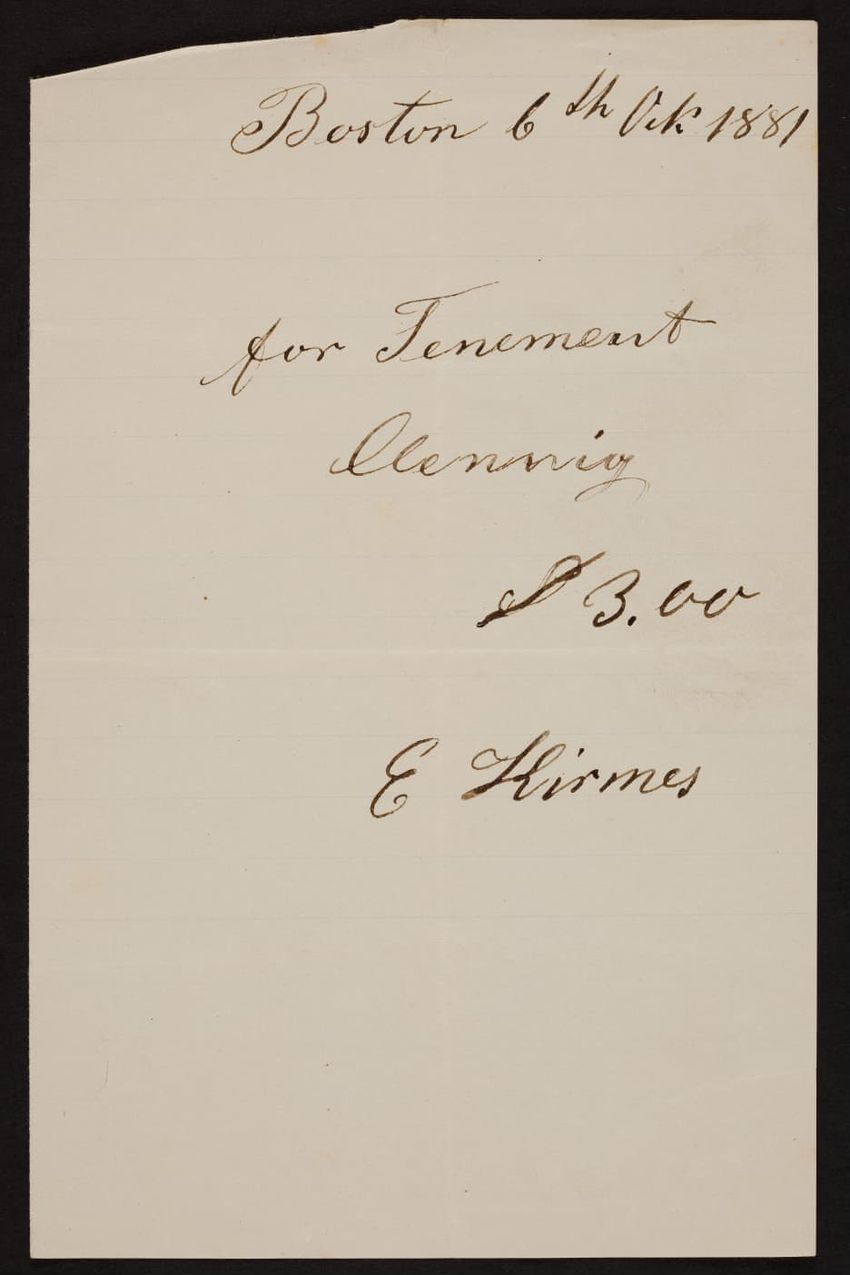 Boston 6th Ok 1881
for Tenement
Clennig
$ 3.00
E Kirmes